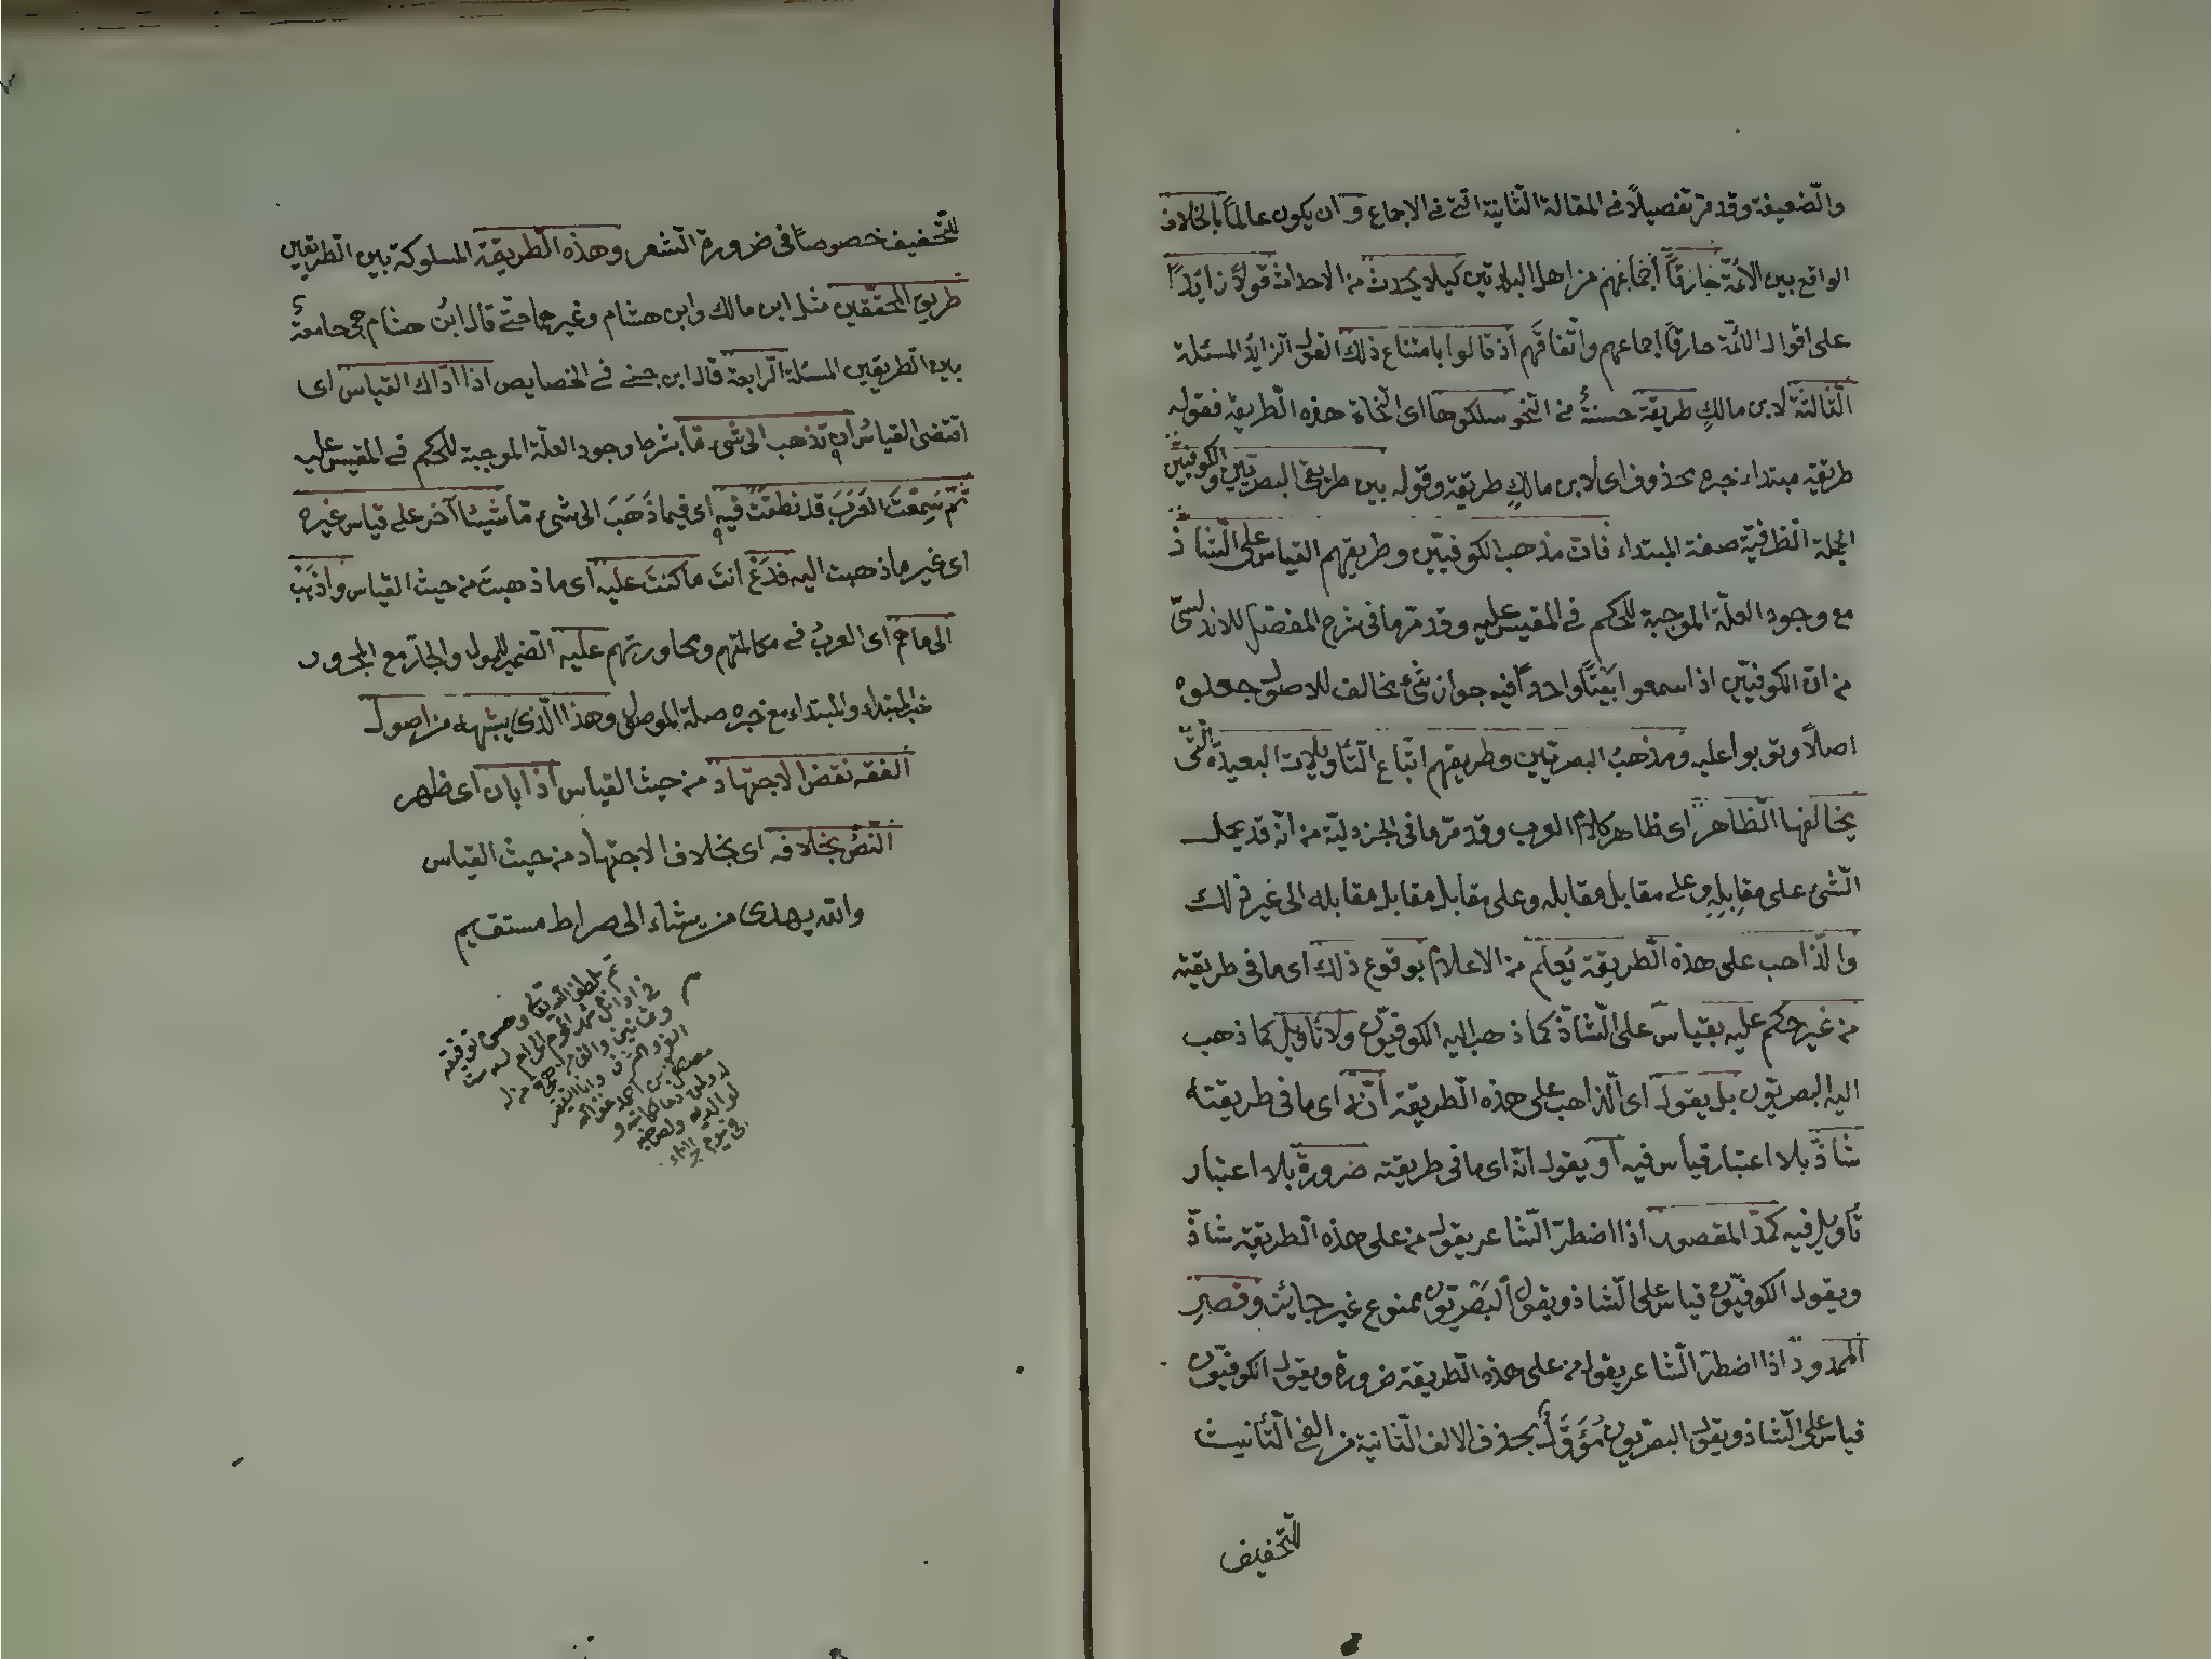 والضعيفة وقد مرّ تفصيلاً في المقالة الثانية التي في الاجماع وان يكون عالماً بالخلاف
الواقع بين الائمّة خارقاً اجماعهم من اهل البلدتين كيلا يحدث من الاحداث قولاً زايداً
على اقوال الائمّة خارقاً اجماعهم واتّفاقهم اذ قالوا بامتناع ذلك القول الزايد المسئلة
الثالثة لابن مالكٍ طريقة حسنةٌ في النحو سلكوها اى النحاة هذه الطريقة فقوله
طريقة مبتداء خبره محذوف اى لابن مالكٍ طريقة وقوله بين طريقى البصريّين والكوفيّين
الجملة الظرفيّة صفة المبتداء فان مذهب الكوفيّين وطريقهم القياس على الشاذّ
مع وجود العلّة الموجبة للحكم في المقيس عليه وقد مرّ ما فى شرح المفصّل للاندلسىّ
من انّ الكوفيّين اذا سمعوا بيتاً واحداً فيه جواز شىء مخالف للاصول جعلوه
اصلاً وبوّبوا عليه ومذهبُ البصريّين وطريقهم اتّباع التأويلات البعيدة الّتى
يخالفها الظاهر اى ظاهر كلام العرب وقد مرّ ما فى الجزوليّة من انّه قد يحمل
الشئ على مقابِلِهِ وعلى مقابل مقابله وعلى مقابل مقابل مقابله الى غير ذلك
والذاهب على هذه الطريقة يُعلم من الاعلام بوقوع ذلك اى ما فى طريقته
من غير حكم عليه بقياس على الشاذّ كما ذهب اليه الكوفيّون ولا تأويل كما ذهب
اليه البصريّون بل يقول اى الذاهب على هذه الطريقة انّه اى ما فى طريقته
شاذّ بلا اعتبار قياس فيه او يقول انّه اى ما فى طريقته ضرورة بلا اعتبار
تأويل فيه كمدّ المقصور اذا اضطرّ الشاعر يقول من على هذه الطريقة شاذّ
ويقول الكوفيّون قياس على الشاذ ويقول البصريّون ممنوع غير جايز وقصرِ
الممدود اذا اضطرّ الشاعر يقول من على هذه الطريقة ضرورة ويقول الكوفيّون
قياس على الشاذ ويقول البصريّون مُؤَوَّلٌ بحذف الالف الثانية من الفى التأنيث
للتخفيف
للتخفيف خصوصاً فى ضرورة الشعر وهذه الطريقة المسلوكة بين الطريقين
طريق المحقّقين مثل ابن مالك وابن هشام وغيرهما حتى قال ابنُ هشام هى جامعةٌ
بين الطريقين المسئلة الرابعة قال ابن جنى فى الخصايص اذا ادّاك القياس اى
اقتضى القياسُ ان تذهب الى شىء مّا بشرط وجود العلّة الموجبة للحكم فى المقيس عليه
ثمّ سَمِعْتَ العَرَبَ قد نطقَتْ فيه اى فيما ذَهَبَ الى شىء مّا شيئاً آخر على قياس غيره
اى غير ما ذهبت اليه فدَعْ انتَ ما كنتَ عليه اى ما ذهبتَ من حيث القياس واذهَبْ
الى ما هم اى العربُ فى مكالمتهم ومحاورتهم عليه الضمير للموصول والجارّ مع المجرور
خبر المبتداء والمبتداء مع خبره صلة الموصول وهذا الّذى يشبهه من اصول
الفقه نقض الاجتهاد من حيث القياس اذا بان اى ظهر
النصُّ بخلافه اى بخلاف الاجتهاد من حيث القياس
والله يهدى من يشاء الى صراط مستقيم
تم بلطف الله تعالى وحسن توفيقه
فى اوائل شهر المحرم الحرام لسنة ست
وثمانين والف من هجرة من له
العز والشرف وانا الفقير
مصطفى بن احمد غفر الله